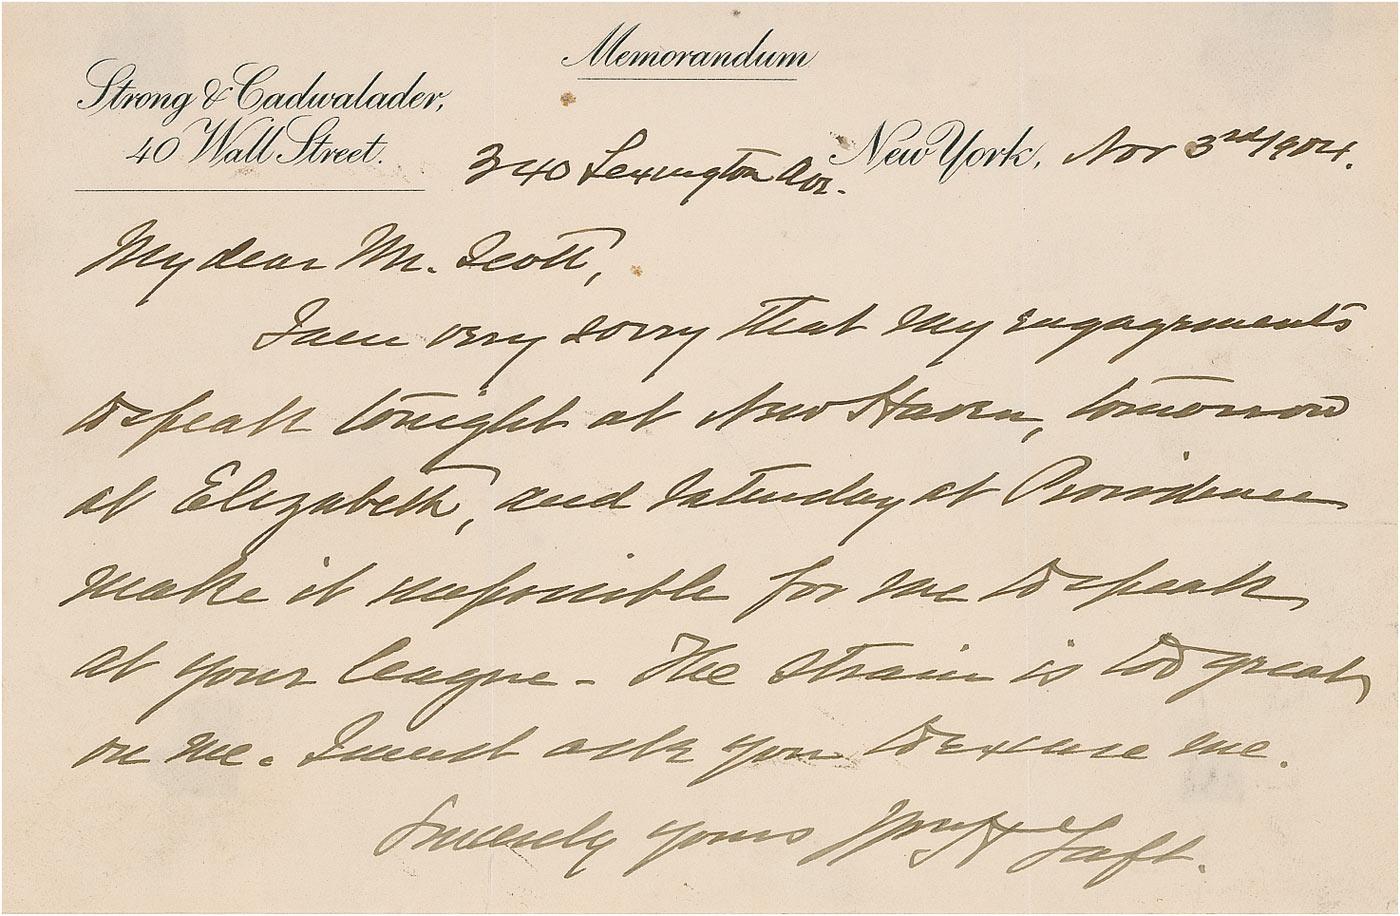 Memorandum
Strong & Cadwalader,
40 Wall Street.
340 Lexington Ave. New York, Nov 3rd 1904.
My dear Mr. Scott,
I am very sorry that my engagements
to speak tonight at New Haven, tomorrow
at Elizabeth, and Saturday at Providence
make it impossible for me to speak
at your league - The strain is too great
on me. I must ask you to excuse me.
Sincerely yours Wm H Taft.